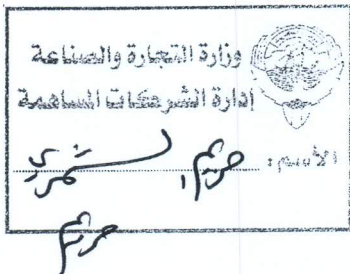 وزارة التجارة والصناعة
إدارة الشركات المساهمة
الأسم : مريم الشمري
مريم